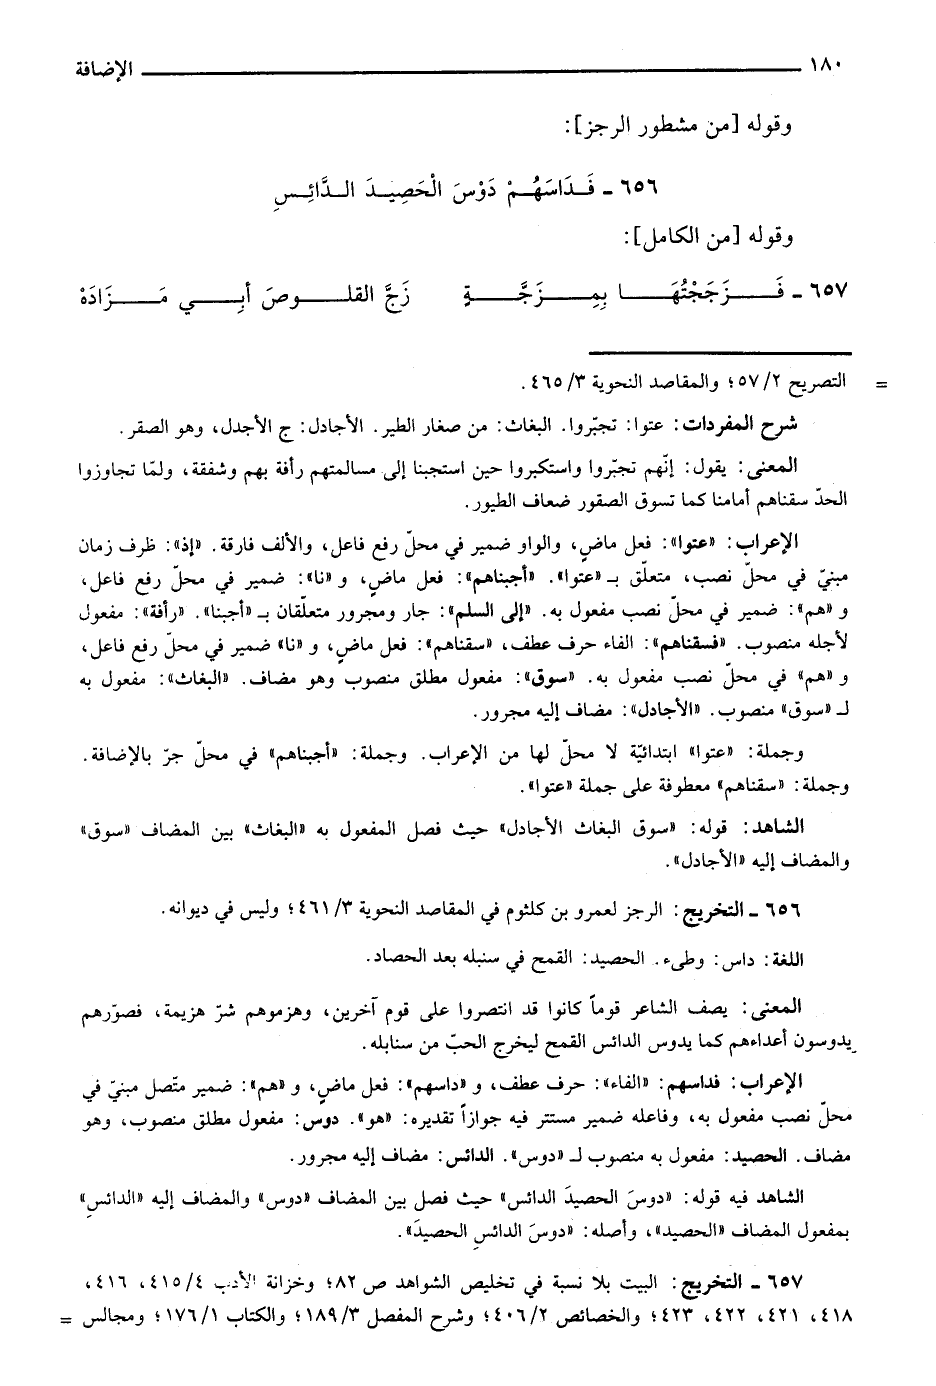 ١٨٠ الإضافة
وقوله [من مشطور الرجز]:
٦٥٦ ـ فَدَاسَهُمْ دَوْسَ الْحَصِيدَ الدَّائِسِ
وقوله [من الكامل]:
٦٥٧ ـ فَزَجَجْتُهَا بِمِزَجَّةٍ زَجَّ القلوصَ أبِي مَزَادَهْ
= التصريح ٢/ ٥٧؛ والمقاصد النحوية ٣/ ٤٦٥.
شرح المفردات: عتوا: تجبّروا. البغاث: من صغار الطير. الأجادل: ج الأجدل، وهو الصقر.
المعنى: يقول: إنّهم تجبّروا واستكبروا حين استجبنا إلى مسالمتهم رأفة بهم وشفقة، ولمّا تجاوزوا
الحدّ سقناهم أمامنا كما تسوق الصقور ضعاف الطيور.
الإعراب: «عتوا»: فعل ماضٍ، والواو ضمير في محلّ رفع فاعل، والألف فارقة. «إذ»: ظرف زمان
مبنيّ في محلّ نصب، متعلّق بـ «عتوا». «أجبناهم»: فعل ماضٍ، و «نا»: ضمير في محلّ رفع فاعل،
و «هم»: ضمير في محلّ نصب مفعول به. «إلى السلم»: جار ومجرور متعلّقان بـ «أجبنا». «رأفة»: مفعول
لأجله منصوب. «فسقناهم»: الفاء حرف عطف، «سقناهم»: فعل ماضٍ، و «نا» ضمير في محلّ رفع فاعل،
و «هم» في محلّ نصب مفعول به. «سوق»: مفعول مطلق منصوب وهو مضاف. «البغاث»: مفعول به
لـ «سوق» منصوب. «الأجادل»: مضاف إليه مجرور.
وجملة: «عتوا» ابتدائيّة لا محلّ لها من الإعراب. وجملة: «أجبناهم» في محلّ جرّ بالإضافة.
وجملة: «سقناهم» معطوفة على جملة «عتوا».
الشاهد: قوله: «سوق البغاث الأجادل» حيث فصل المفعول به «البغاث» بين المضاف «سوق»
والمضاف إليه «الأجادل».
٦٥٦ ـ التخريج: الرجز لعمرو بن كلثوم في المقاصد النحوية ٣/ ٤٦١؛ وليس في ديوانه.
اللغة: داس: وطىء. الحصيد: القمح في سنبله بعد الحصاد.
المعنى: يصف الشاعر قوماً كانوا قد انتصروا على قوم آخرين، وهزموهم شرّ هزيمة، فصوّرهم
يدوسون أعداءهم كما يدوس الدائس القمح ليخرج الحبّ من سنابله.
الإعراب: فداسهم: «الفاء»: حرف عطف، و «داسهم»: فعل ماضٍ، و «هم»: ضمير متّصل مبنيّ في
محلّ نصب مفعول به، وفاعله ضمير مستتر فيه جوازاً تقديره: «هو». دوس: مفعول مطلق منصوب، وهو
مضاف. الحصيد: مفعول به منصوب لـ «دوس». الدائس: مضاف إليه مجرور.
الشاهد فيه قوله: «دوسَ الحصيدَ الدائس» حيث فصل بين المضاف «دوس» والمضاف إليه «الدائسِ»
بمفعول المضاف «الحصيد»، وأصله: «دوسَ الدائسِ الحصيدَ».
٦٥٧ ـ التخريج: البيت بلا نسبة في تخليص الشواهد ص ٨٢؛ وخزانة الأدب ٤/ ٤١٥، ٤١٦،
٤١٨، ٤٢١، ٤٢٢، ٤٢٣؛ والخصائص ٢/ ٤٠٦؛ وشرح المفصل ٣/ ١٨٩؛ والكتاب ١/ ١٧٦؛ ومجالس =